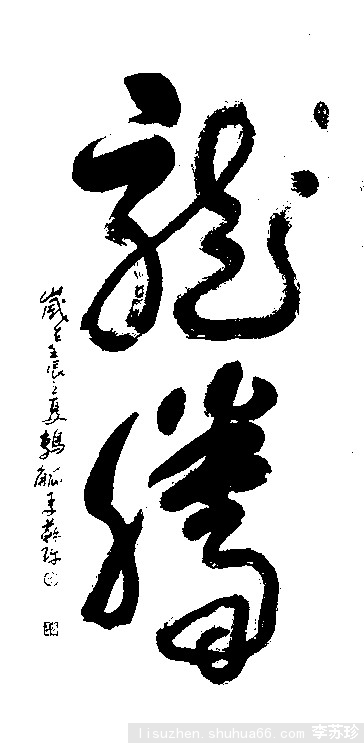 龍騰
歲壬辰之夏鶉觚李蘇珍
lisuzhen.shuhua66.com 李苏珍